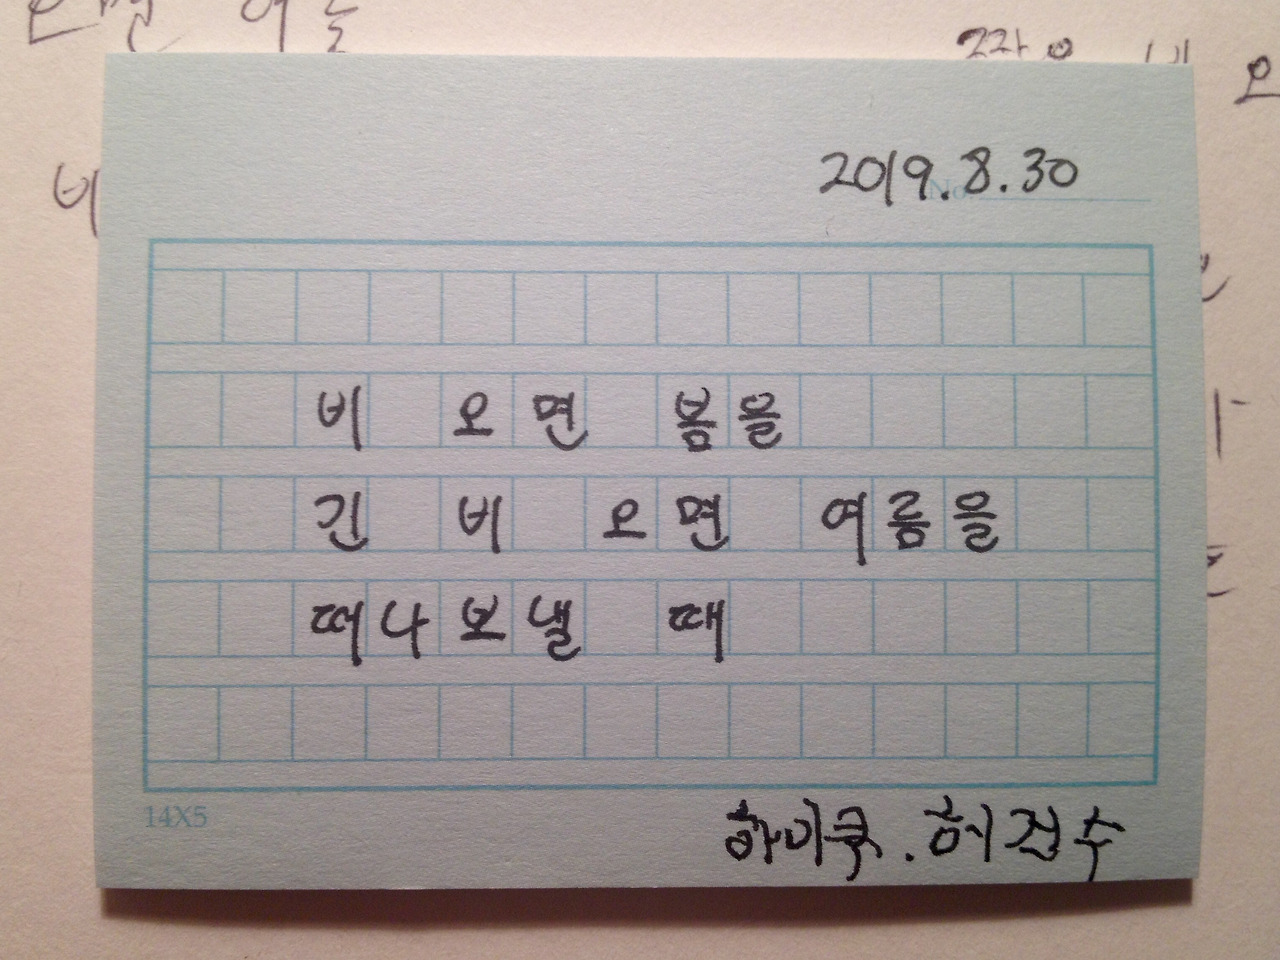 2019.8.30
No.
비 오면 봄을
긴 비 오면 여름을
떠나보낼 때
14X5
하이쿠. 허건수